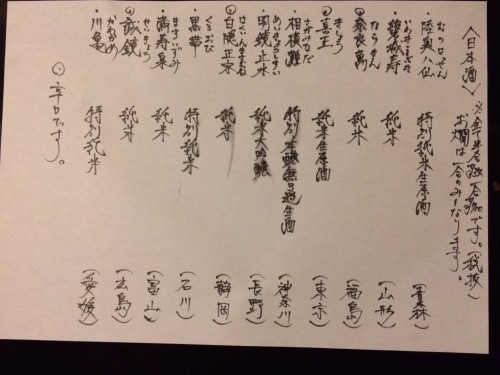 〈日本酒〉 ※全て半合 一合 です。(税抜)
お燗は一合のみとなります。
むつはっせん
・陸奥八仙 特別純米生原酒 (青森)
いわきことぶき
・磐城寿 純米 (山形)
ならまん
◎奈良萬 純米 (福島)
きしょう
◎喜正 純米生原酒 (東京)
さがみなだ
・相模灘 特別本醸無ろ過生酒 (神奈川)
めいきょうしすい
・明鏡止水 純米大吟醸 (長野)
はくいんまさむね
◎白隠正宗 純米 (静岡)
くろおび
・黒帯 特別純米 (石川)
ますいずみ
・満寿泉 純米 (富山)
せいきょう
◎誠鏡 純米 (広島)
かわかめ
・川亀 特別純米 (愛媛)
◎辛口です。